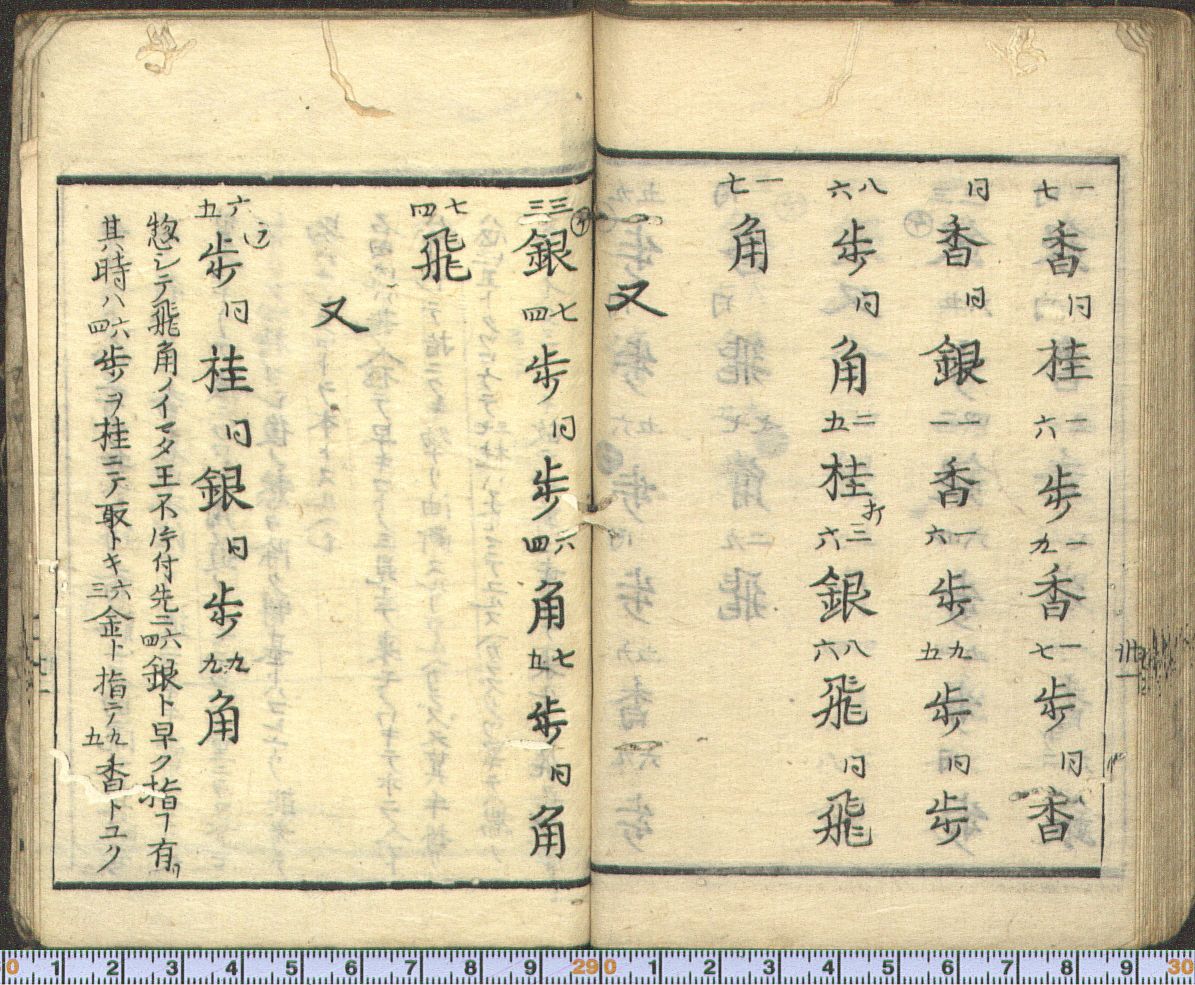 一七香同桂一六歩一九香一七歩同香
同香同銀一一香一六歩九五歩同歩
八六歩同角二五桂打三六銀八六飛同飛
一七角
又
三三銀七四歩同歩六四角七五歩同角
七四飛
又
六五歩同桂同銀同歩九九角
惣シテ飛角ノイマタ王不片付先ニ六四銀ト早ク指ヿ有リ
其時ハ六四歩ヲ桂ニテ取トキ六三金ト指テ九五香トユク
0 1 2 3 4 5 6 7 8 9 29 0 1 2 3 4 5 6 7 8 9 30